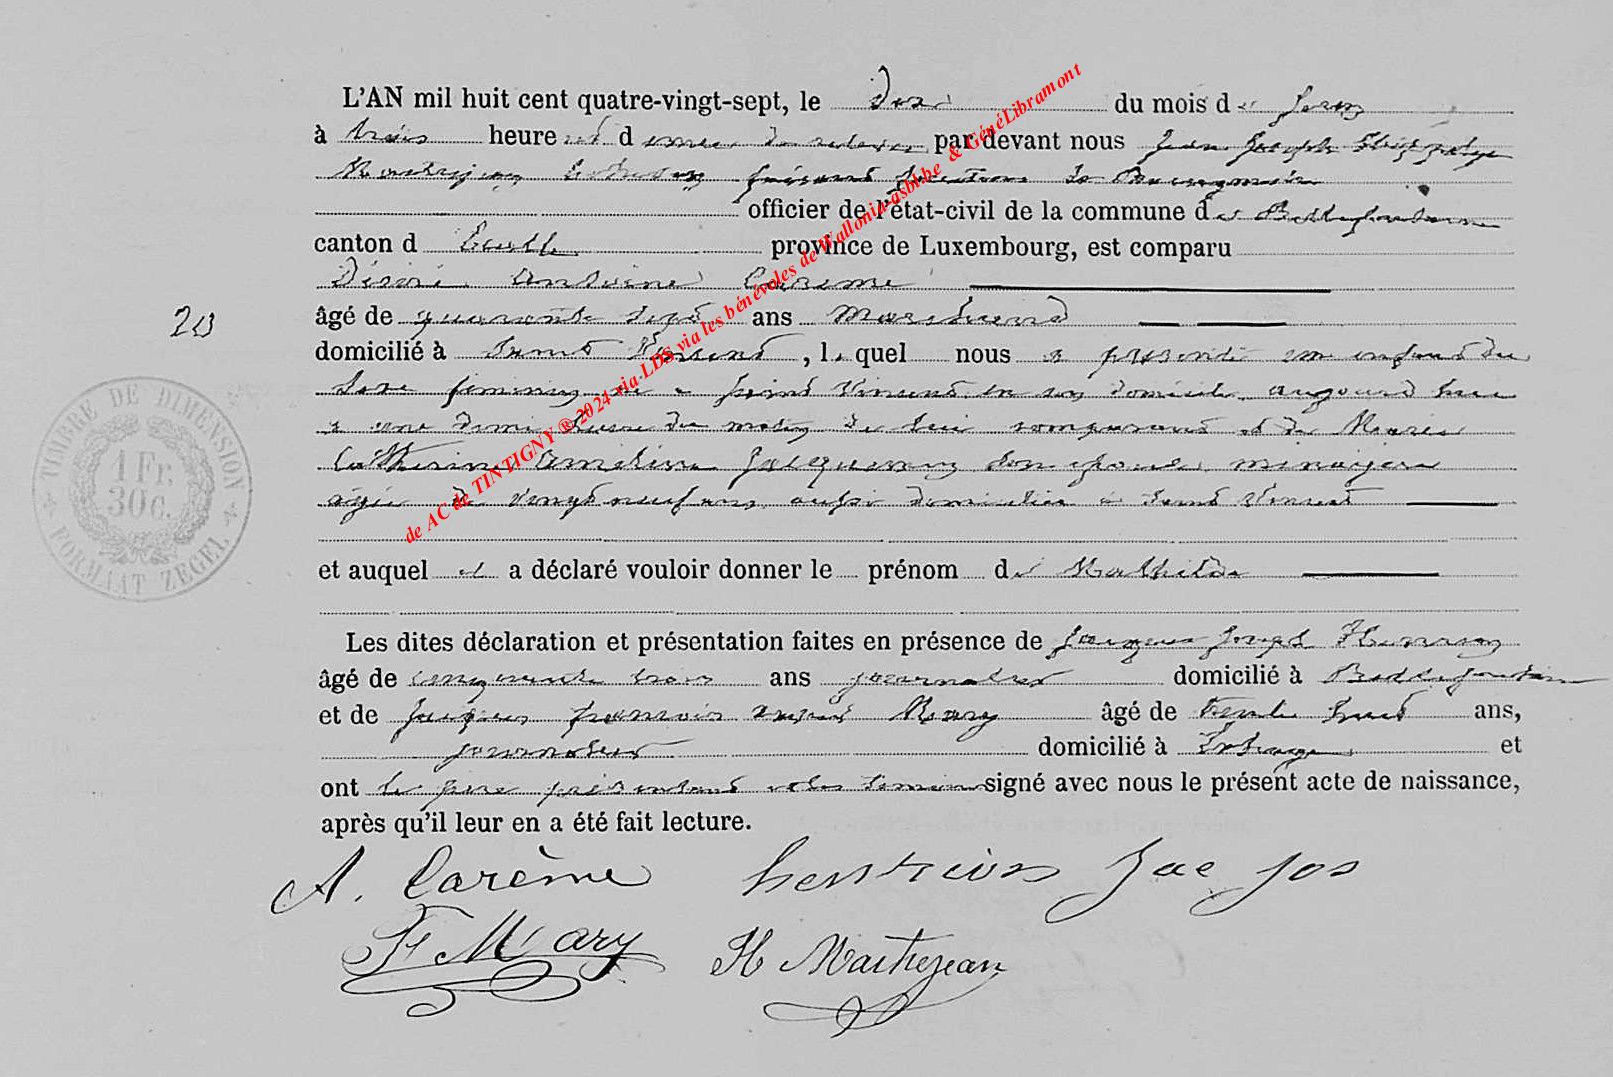 L'AN mil huit cent quatre-vingt-sept, le du mois de
à trois heures d du par devant nous Jean Joseph
faisant fonctions de Bourgmestre
officier de l'état-civil de la commune de Bellefontaine
canton d Etalle province de Luxembourg, est comparu
Désiré Antoine Carême
20
âgé de quarante sept ans Marchand
domicilié à Saint Vincent, lequel nous a présenté un enfant du
sexe féminin né à Saint Vincent en son domicile aujourd'hui
à une demi heure du matin de lui comparant et de Marie
Catherine Jacquemin son épouse ménagère
âgée de vingt neuf ans aussi domiciliée à Saint Vincent
et auquel il a déclaré vouloir donner le prénom de Mathilde
Les dites déclaration et présentation faites en présence de Jacques Joseph
âgé de cinquante trois ans journalier domicilié à Bellefontaine
et de Jacques françois Mary âgé de trente huit ans,
journalier domicilié à et
ont le père présentant et les témoins signé avec nous le présent acte de naissance,
après qu'il leur en a été fait lecture.
A. Carême Jac jos
F Mary H Maitrejean
TIMBRE DE DIMENSION
1 Fr.
30 c.
FORMAAT ZEGEL
de AC de TINTIGNY ® 2024 via LDS via les bénévoles de Wallonia-asbl.be & GénéLibramont